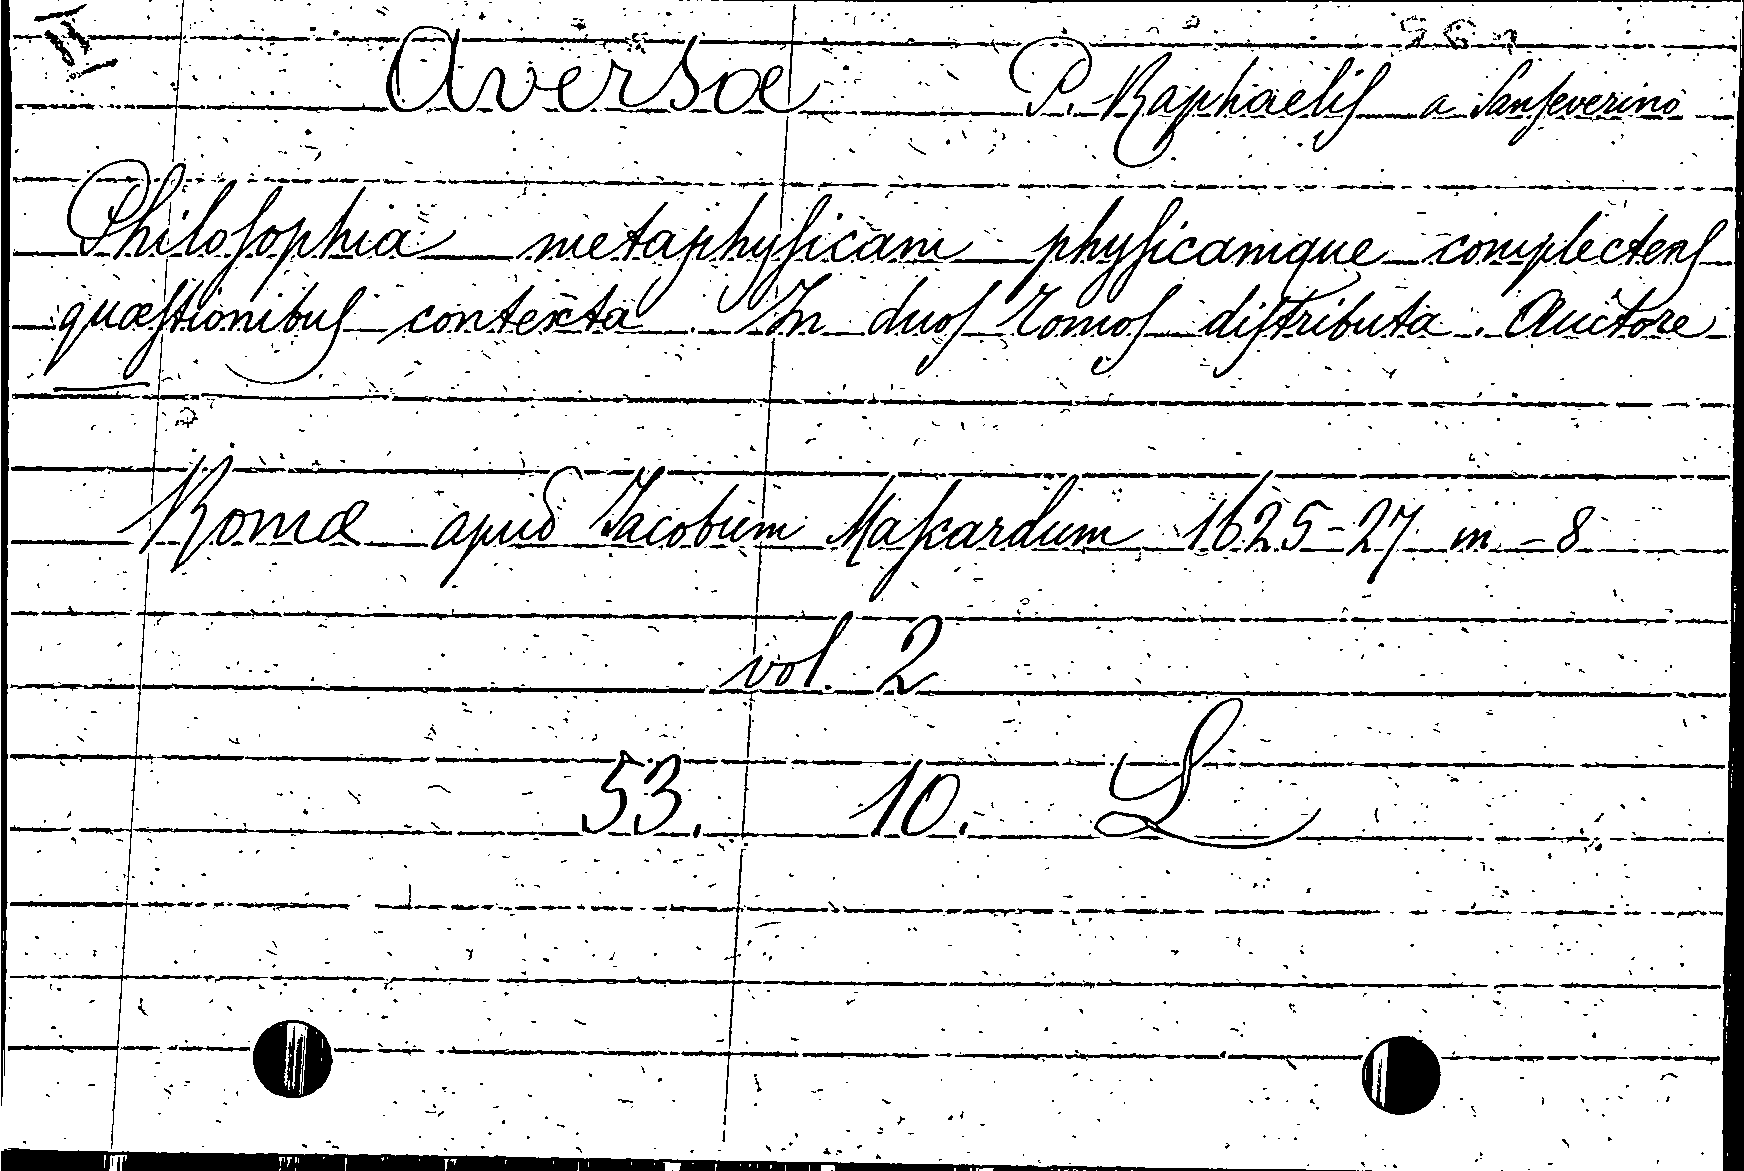 II
Aversæ P. Raphaelis a Sanseverino
Philosophia metaphysicam physicamque complectens
quæstionibus contexta. In duos Tomos distributa. Auctore
Romæ apud Jacobum Mascardum 1625-27 in -8
vol. 2
53. 10. L